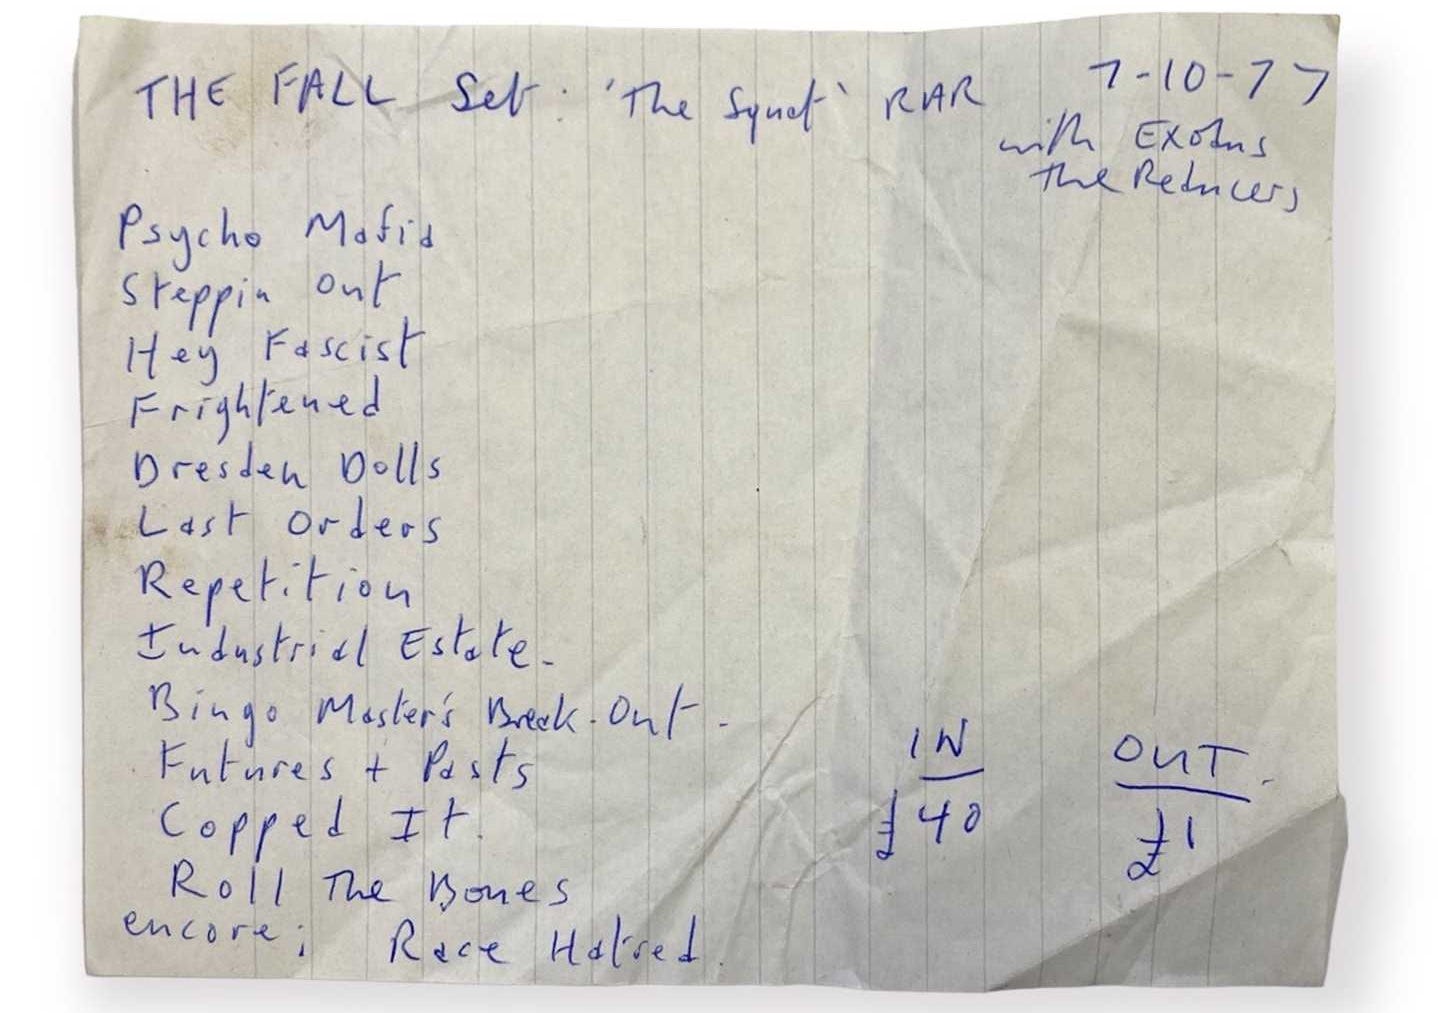 THE FALL Set: 'The Squat' RAR 7-10-77
with Exodus
The Reducers
Psycho Mafia
Steppin Out
Hey Fascist
Frightened
Dresden Dolls
Last Orders
Repetition
Industrial Estate-
Bingo Master's Break-Out-
Futures + Pasts
Copped It.
Roll The Bones
encore; Race Hatred.
IN OUT.
£40 £1